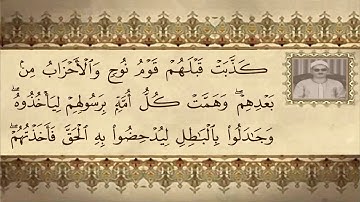 كَذَّبَتْ قَبْلَهُمْ قَوْمُ نُوحٍ وَالْأَحْزَابُ مِنۢ
بَعْدِهِمْ ۖ وَهَمَّتْ كُلُّ أُمَّةٍۭ بِرَسُولِهِمْ لِيَأْخُذُوهُ ۖ
وَجَٰدَلُوا۟ بِالْبَٰطِلِ لِيُدْحِضُوا۟ بِهِ الْحَقَّ فَأَخَذْتُهُمْ ۖ